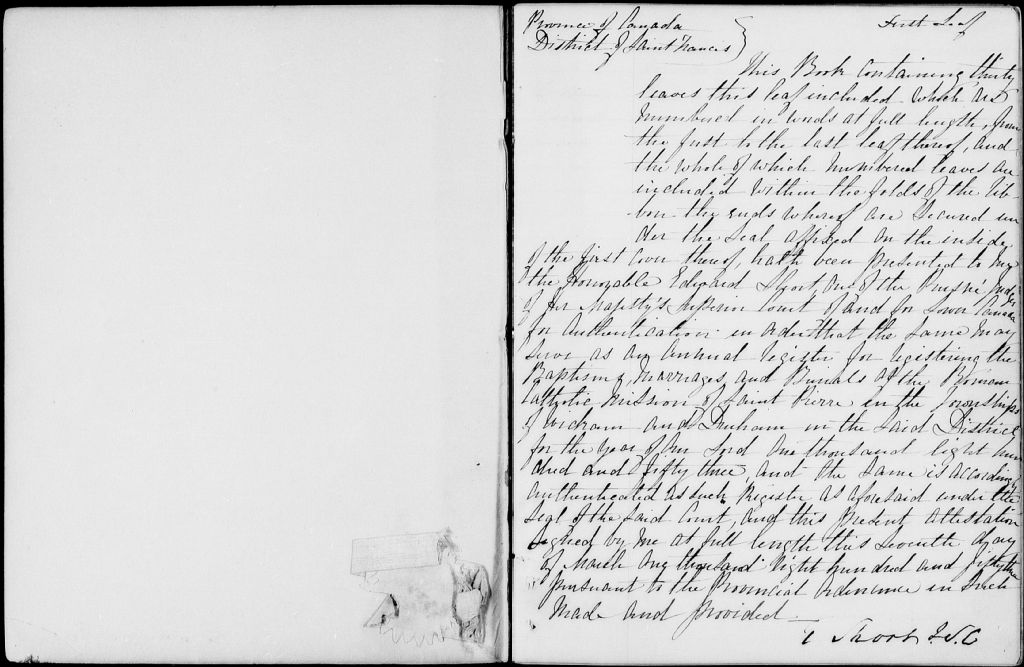 Province of Canada
District of Saint Francis
First Leaf
This Book containing thirty
leaves this leaf included which are
numbered in words at full length, from
the first to the last leaf thereof, and
the whole of which numbered leaves are
included within the folds of the rib-
bon the ends whereof are secured un
der the Seal affixed on the inside
of the first cover thereof, hath been presented to me
the Honorable Edward Short, one of the Puisné Judges
of Her Majesty's Superior Court of and for Lower Canada
for authentication in order that the same may
serve as an annual register for registering the
Baptisms, Marriages, and Burials of the Roman
Catholic Mission of Saint Pierre in the Townships
of Wickham and Durham in the said District
for the year of our Lord one thousand eight hun
dred and fifty three, and the same is according
authenticated as such Register as aforesaid under the
Seal of the said Court, and this present attestation
signed by me at full length this Seventh day
of March one thousand eight hundred and fifty three
pursuant to the Provincial ordinance in such
made and provided
Short J.S.C